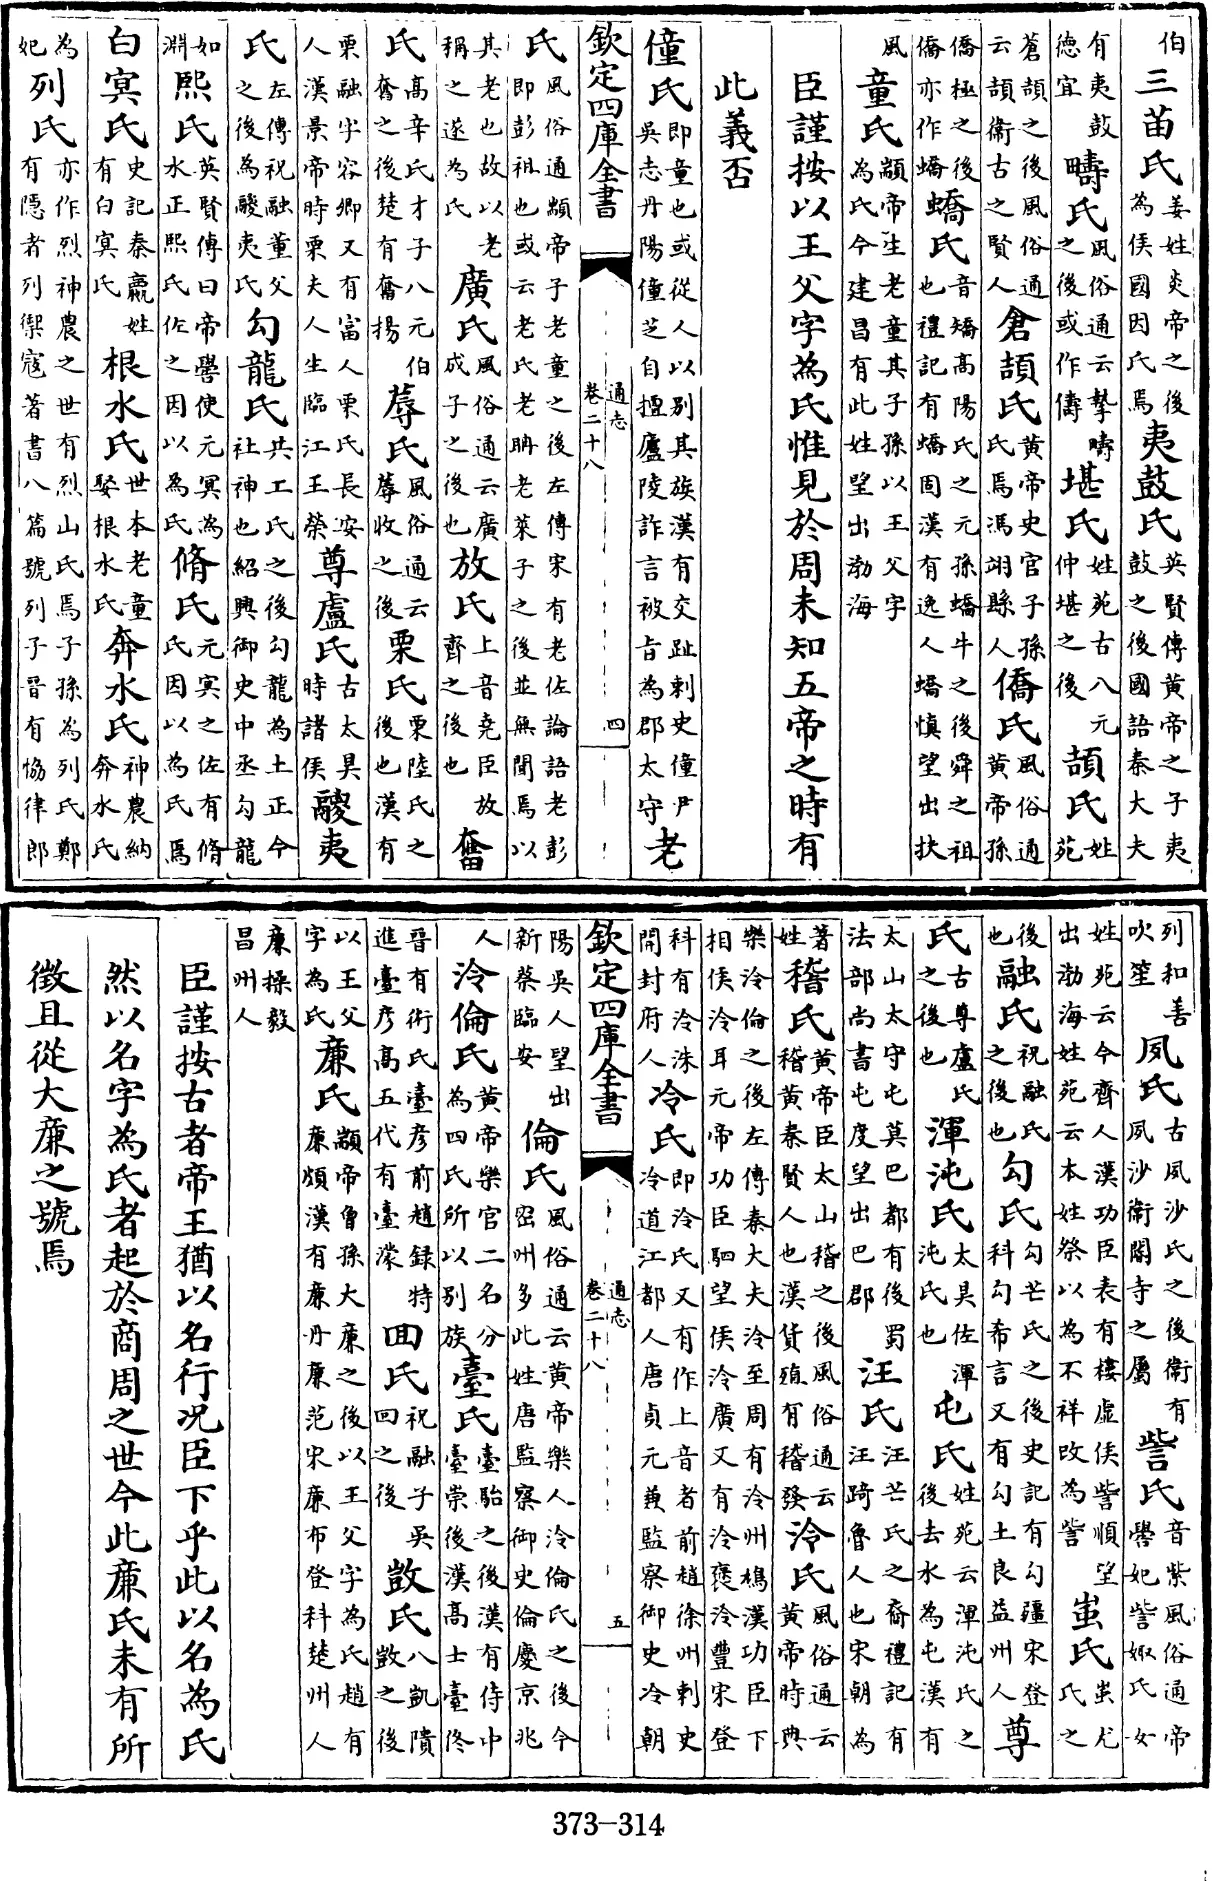 伯三苗氏姜姓炎帝之後為侯國因氏焉夷鼓氏英賢傳黄帝之子夷鼓之後國語秦大夫
有夷鼓德宜疇氏風俗通云摯疇之後或作儔堪氏姓苑古八元仲堪之後頡氏姓苑
蒼頡之後風俗通云頡衛古之賢人倉頡氏黄帝史官子孫氏焉馮翊縣人僑氏風俗通黄帝孫
僑極之後僑亦作蟜蟜氏音矯高陽氏之元孫蟜牛之後舜之祖也禮記有蟜固漢有逸人蟜慎望出扶
風童氏顓帝生老童其子孫以王父字為氏今建昌有此姓望出渤海
臣謹按以王父字為氏惟見於周未知五帝之時有
此義否
僮氏即童也或從人以别其族漢有交趾刺史僮尹吳志丹陽僮芝自擅廬陵詐言被㫖為郡太守老
欽定四庫全書 通志 卷二十八 四
氏風俗通顓帝子老童之後左傳宋有老佐論語老彭即彭祖也或云老氏老聃老萊子之後並無聞焉以
其老也故以老稱之遂為氏廣氏風俗通云廣成子之後也放氏上音堯臣放齊之後也奮
氏高辛氏才子八元伯奮之後楚有奮揚蓐氏風俗通云蓐收之後栗氏栗陸氏之後也漢有
栗融字容卿又有富人栗氏長安人漢景帝時栗夫人生臨江王榮尊盧氏古太昊時諸侯鬷夷
氏左傳祝融董父之後為鬷夷氏勾龍氏共工氏之後勾龍為土正今社神也紹興御史中丞勾龍
如淵熙氏英賢傳曰帝嚳使元冥為水正熙氏佐之因以為氏脩氏元冥之佐有脩氏因以為氏焉
白冥氏史記秦嬴姓有白冥氏根水氏世本老童娶根水氏奔水氏神農納奔水氏
為妃列氏亦作烈神農之世有烈山氏焉子孫為列氏鄭有隱者列禦寇著書八篇號列子晉有協律郎
列和善吹笙夙氏古夙沙氏之後衛有夙沙衛閽寺之屬訾氏音紫風俗通帝嚳妃訾娵氏女
姓苑云今齊人漢功臣表有樓虚侯訾順望出渤海姓苑云本姓祭以為不祥改為訾蚩氏蚩尤氏之
後也融氏祝融氏之後也勾氏勾芒氏之後史記有勾疆宋登科勾希言又有勾士良益州人尊
氏古尊盧氏之後也渾沌氏太昊佐渾沌氏也屯氏姓苑云渾沌氏之後去水為屯漢有
太山太守屯莫巴都有後蜀法部尚書屯度望出巴郡汪氏汪芒氏之裔禮記有汪踦魯人也宋朝為
著姓稽氏黄帝臣太山稽之後風俗通云稽黄秦賢人也漢貨殖有稽發泠氏風俗通云黄帝時典
樂泠倫之後左傳秦大夫泠至周有泠州鳩漢功臣下相侯泠耳元帝功臣駟望侯泠廣又有泠褒泠豐宋登
科有泠洙開封府人冷氏即泠氏又有作上音者前趙徐州刺史冷道江都人唐貞元兼監察御史冷朝
欽定四庫全書 通志 卷二十八 五
陽吳人望出新蔡臨安倫氏風俗通云黄帝樂人泠倫氏之後今密州多此姓唐監察御史倫慶京兆
人泠倫氏黄帝樂官二名分為四氏所以别族臺氏臺駘之後漢有侍中臺崇後漢高士臺佟
晉有術氏臺彦前趙録特進臺彦高五代有臺濛囬氏祝融子吳回之後敳氏八凱隤敳之後
以王父字為氏亷氏顓帝曾孫大亷之後以王父字為氏趙有亷頗漢有亷丹亷范宋亷布登科楚州人
亷操毅昌州人
臣謹按古者帝王猶以名行况臣下乎此以名為氏
然以名字為氏者起於商周之世今此亷氏未有所
徵且從大亷之號焉
373-314